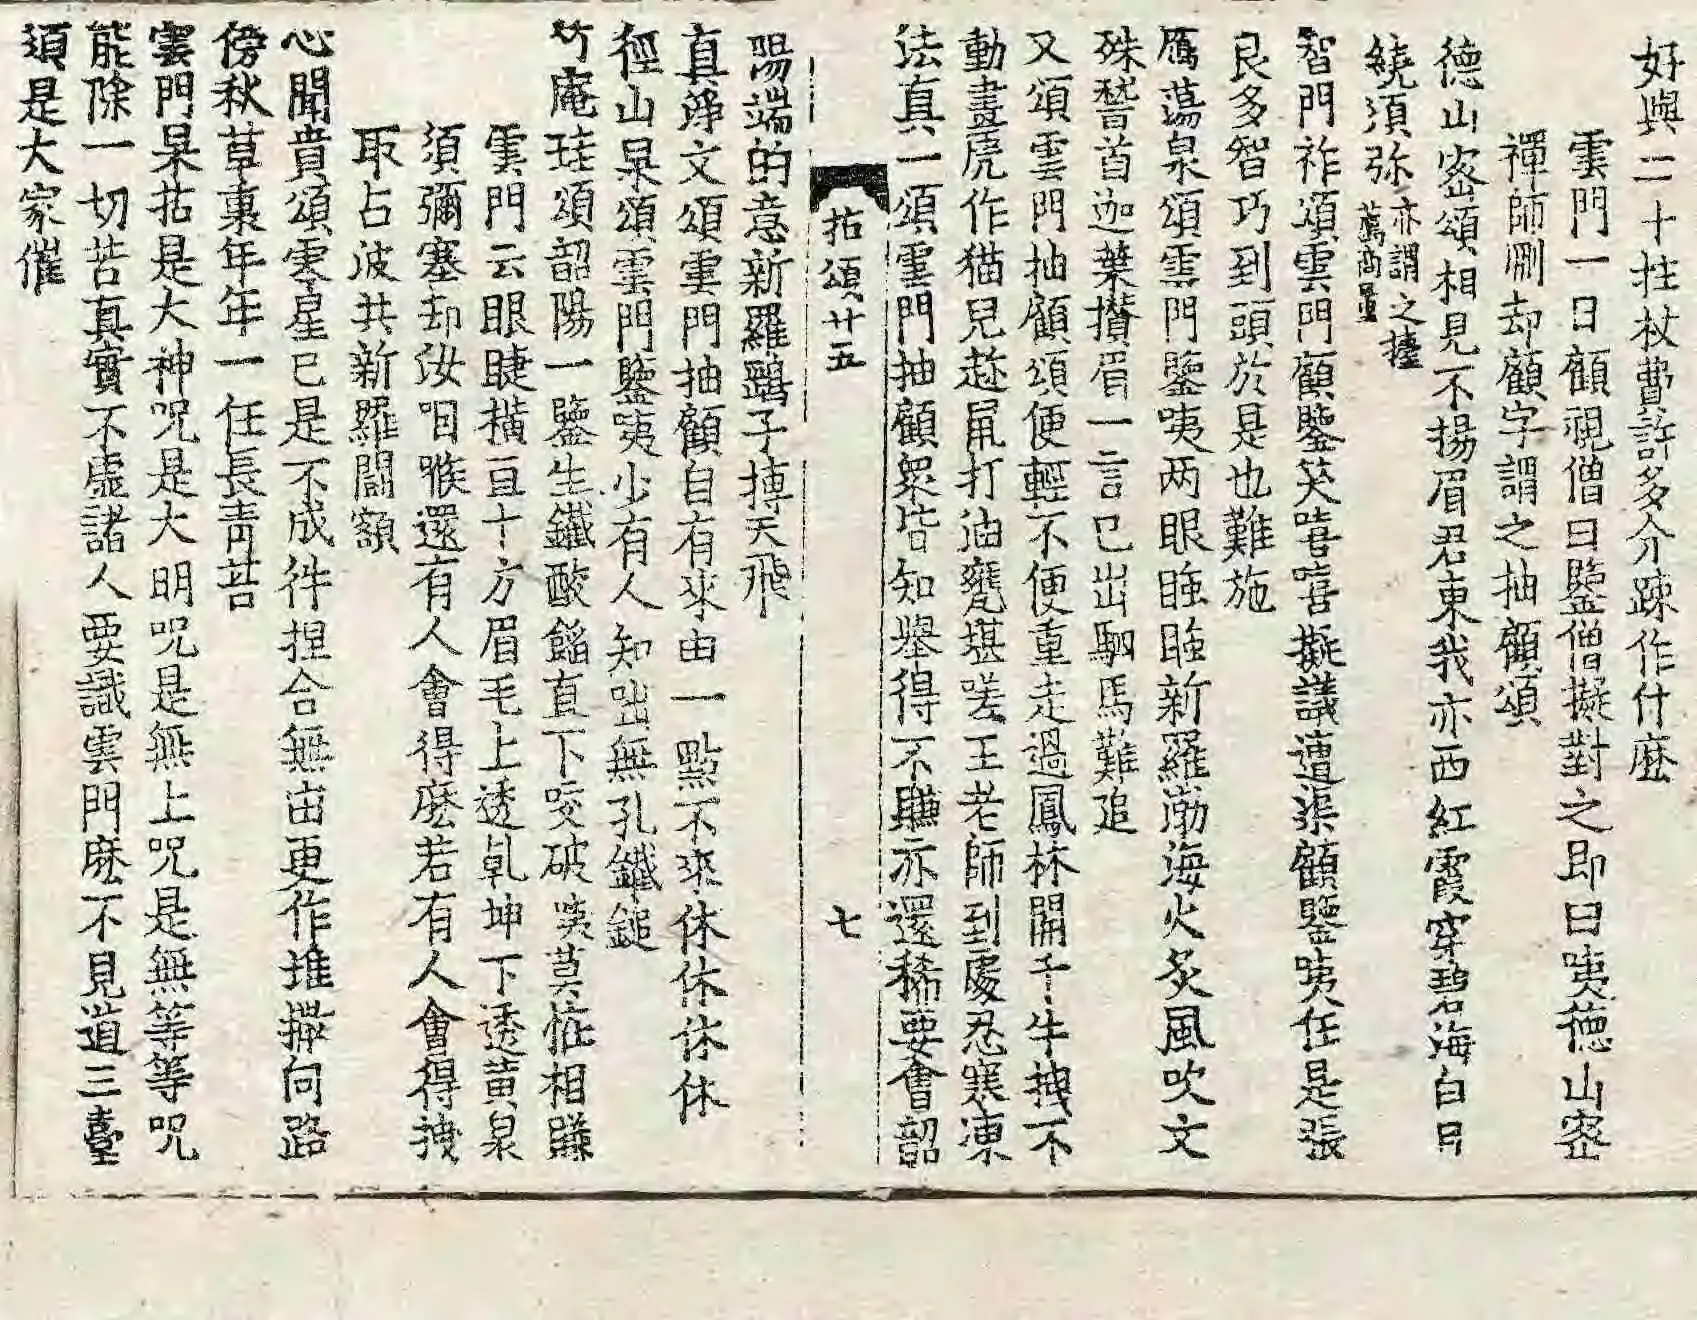 好與二十拄杖費許多分疎作什麽
雲門一日顧視僧曰鑒僧擬對之即曰咦德山密
禪師刪却顧字謂之抽顧頌
德山密頌相見不揚眉君東我亦西紅霞穿碧海白日
繞須弥亦謂之擡
薦商量
智門祚頌雲門顧鑒笑嘻嘻擬議遭渠顧鑒咦任是張
良多智巧到頭於是也難施
鴈蕩泉頌雲門鑒咦两眼𥅻𥅻新羅渤海火炙風吹文
殊瞀首迦葉攅眉一言已出駟馬難追
又頌雲門抽顧頌便輕不便重走過鳳林開千牛拽不
動盡虎作猫兒趂鼠打油甕堪嗟王老師到處忍寒凍
法真一頌雲門抽顧衆皆知舉得不賺亦還稀要會韶
拈頌廿五
七
陽端的意新羅鷂子摶天飛
真淨文頌雲門抽顧自有來由一點不來休休休休
徑山杲頌雲門鑒咦少有人知咄無孔鐵鎚
竹庵珪頌韶陽一鑒生鐵酸餡直下咬破咦莫恠相賺
雲門云眼睫橫亘十方眉毛上透乹坤下透黄泉
須彌塞却汝咽喉還有人會得麽若有人會得拽
取占波共新羅鬪額
心聞賁頌零星已是不成件揑合無由更作堆撒向路
傍秋草裏年年一任長靑苔
雲門杲拈是大神呪是大明呪是無上呪是無等等呪
能除一切苦真實不虛諸人要識雲門麽不見道三臺
須是大家催